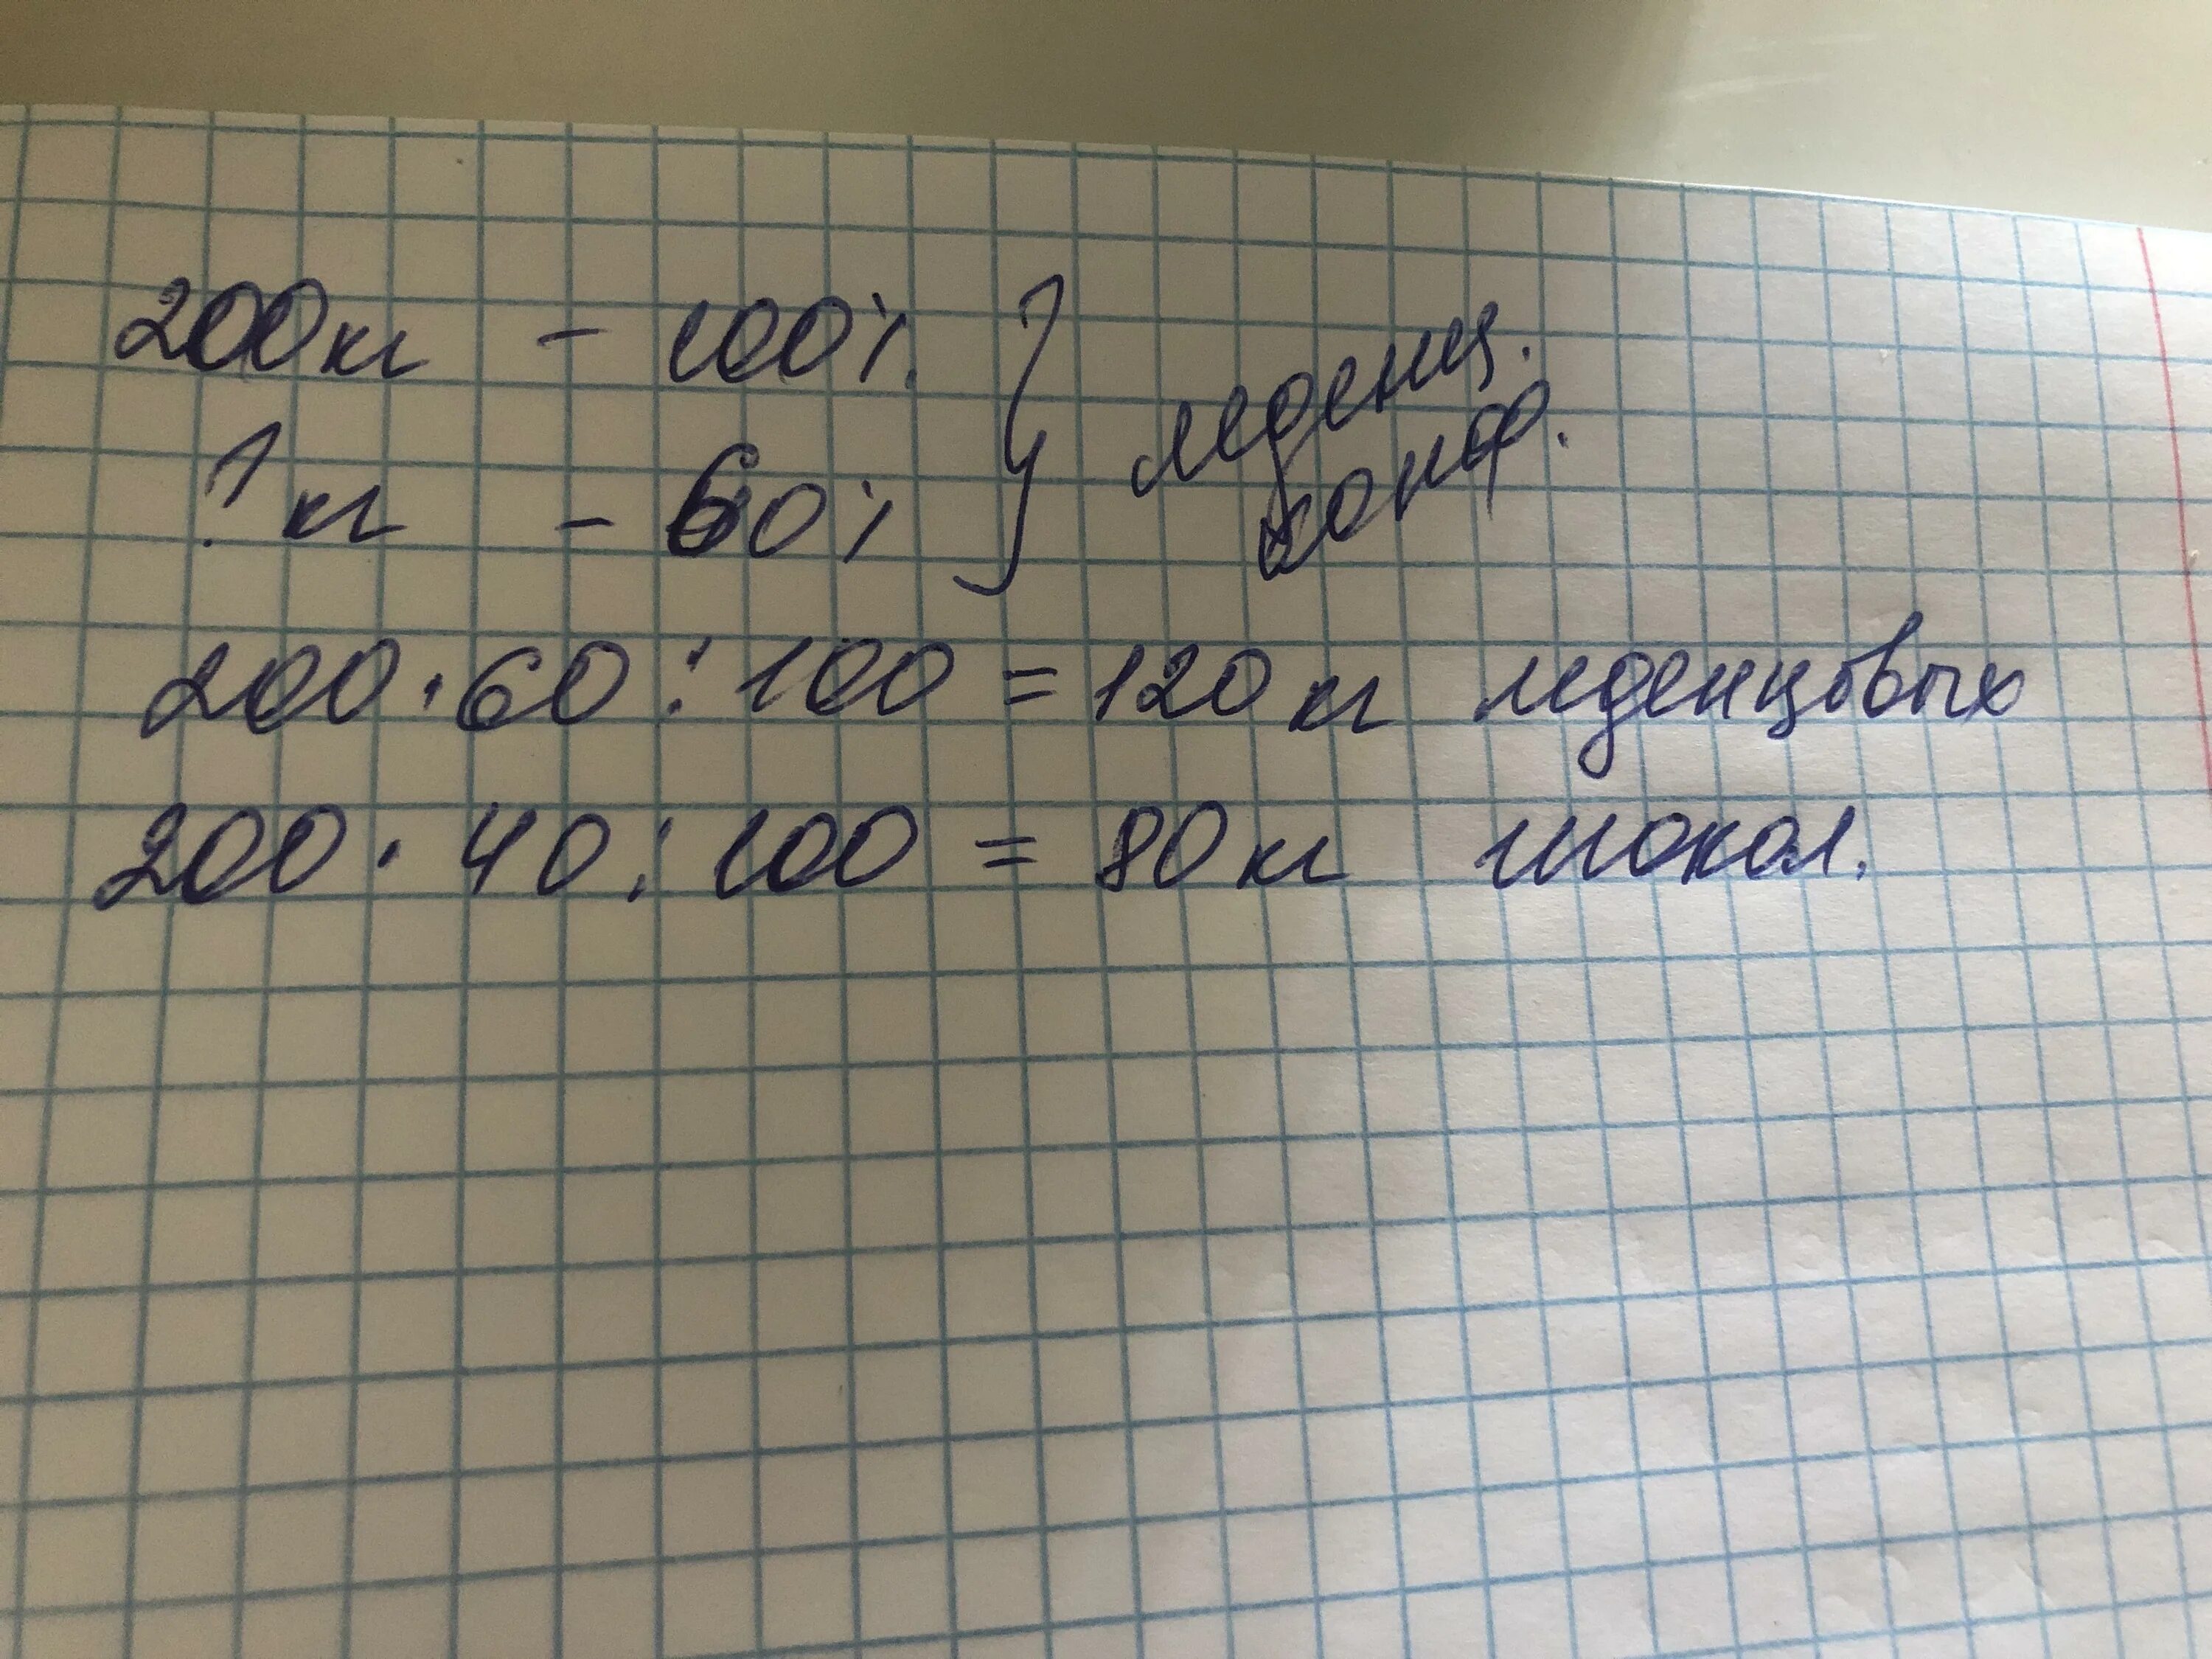 200кг - 100%
? кг - 60%
леденц.
конф.
200·60:100=120кг леденцовых
200·40:100=80кг шокол.